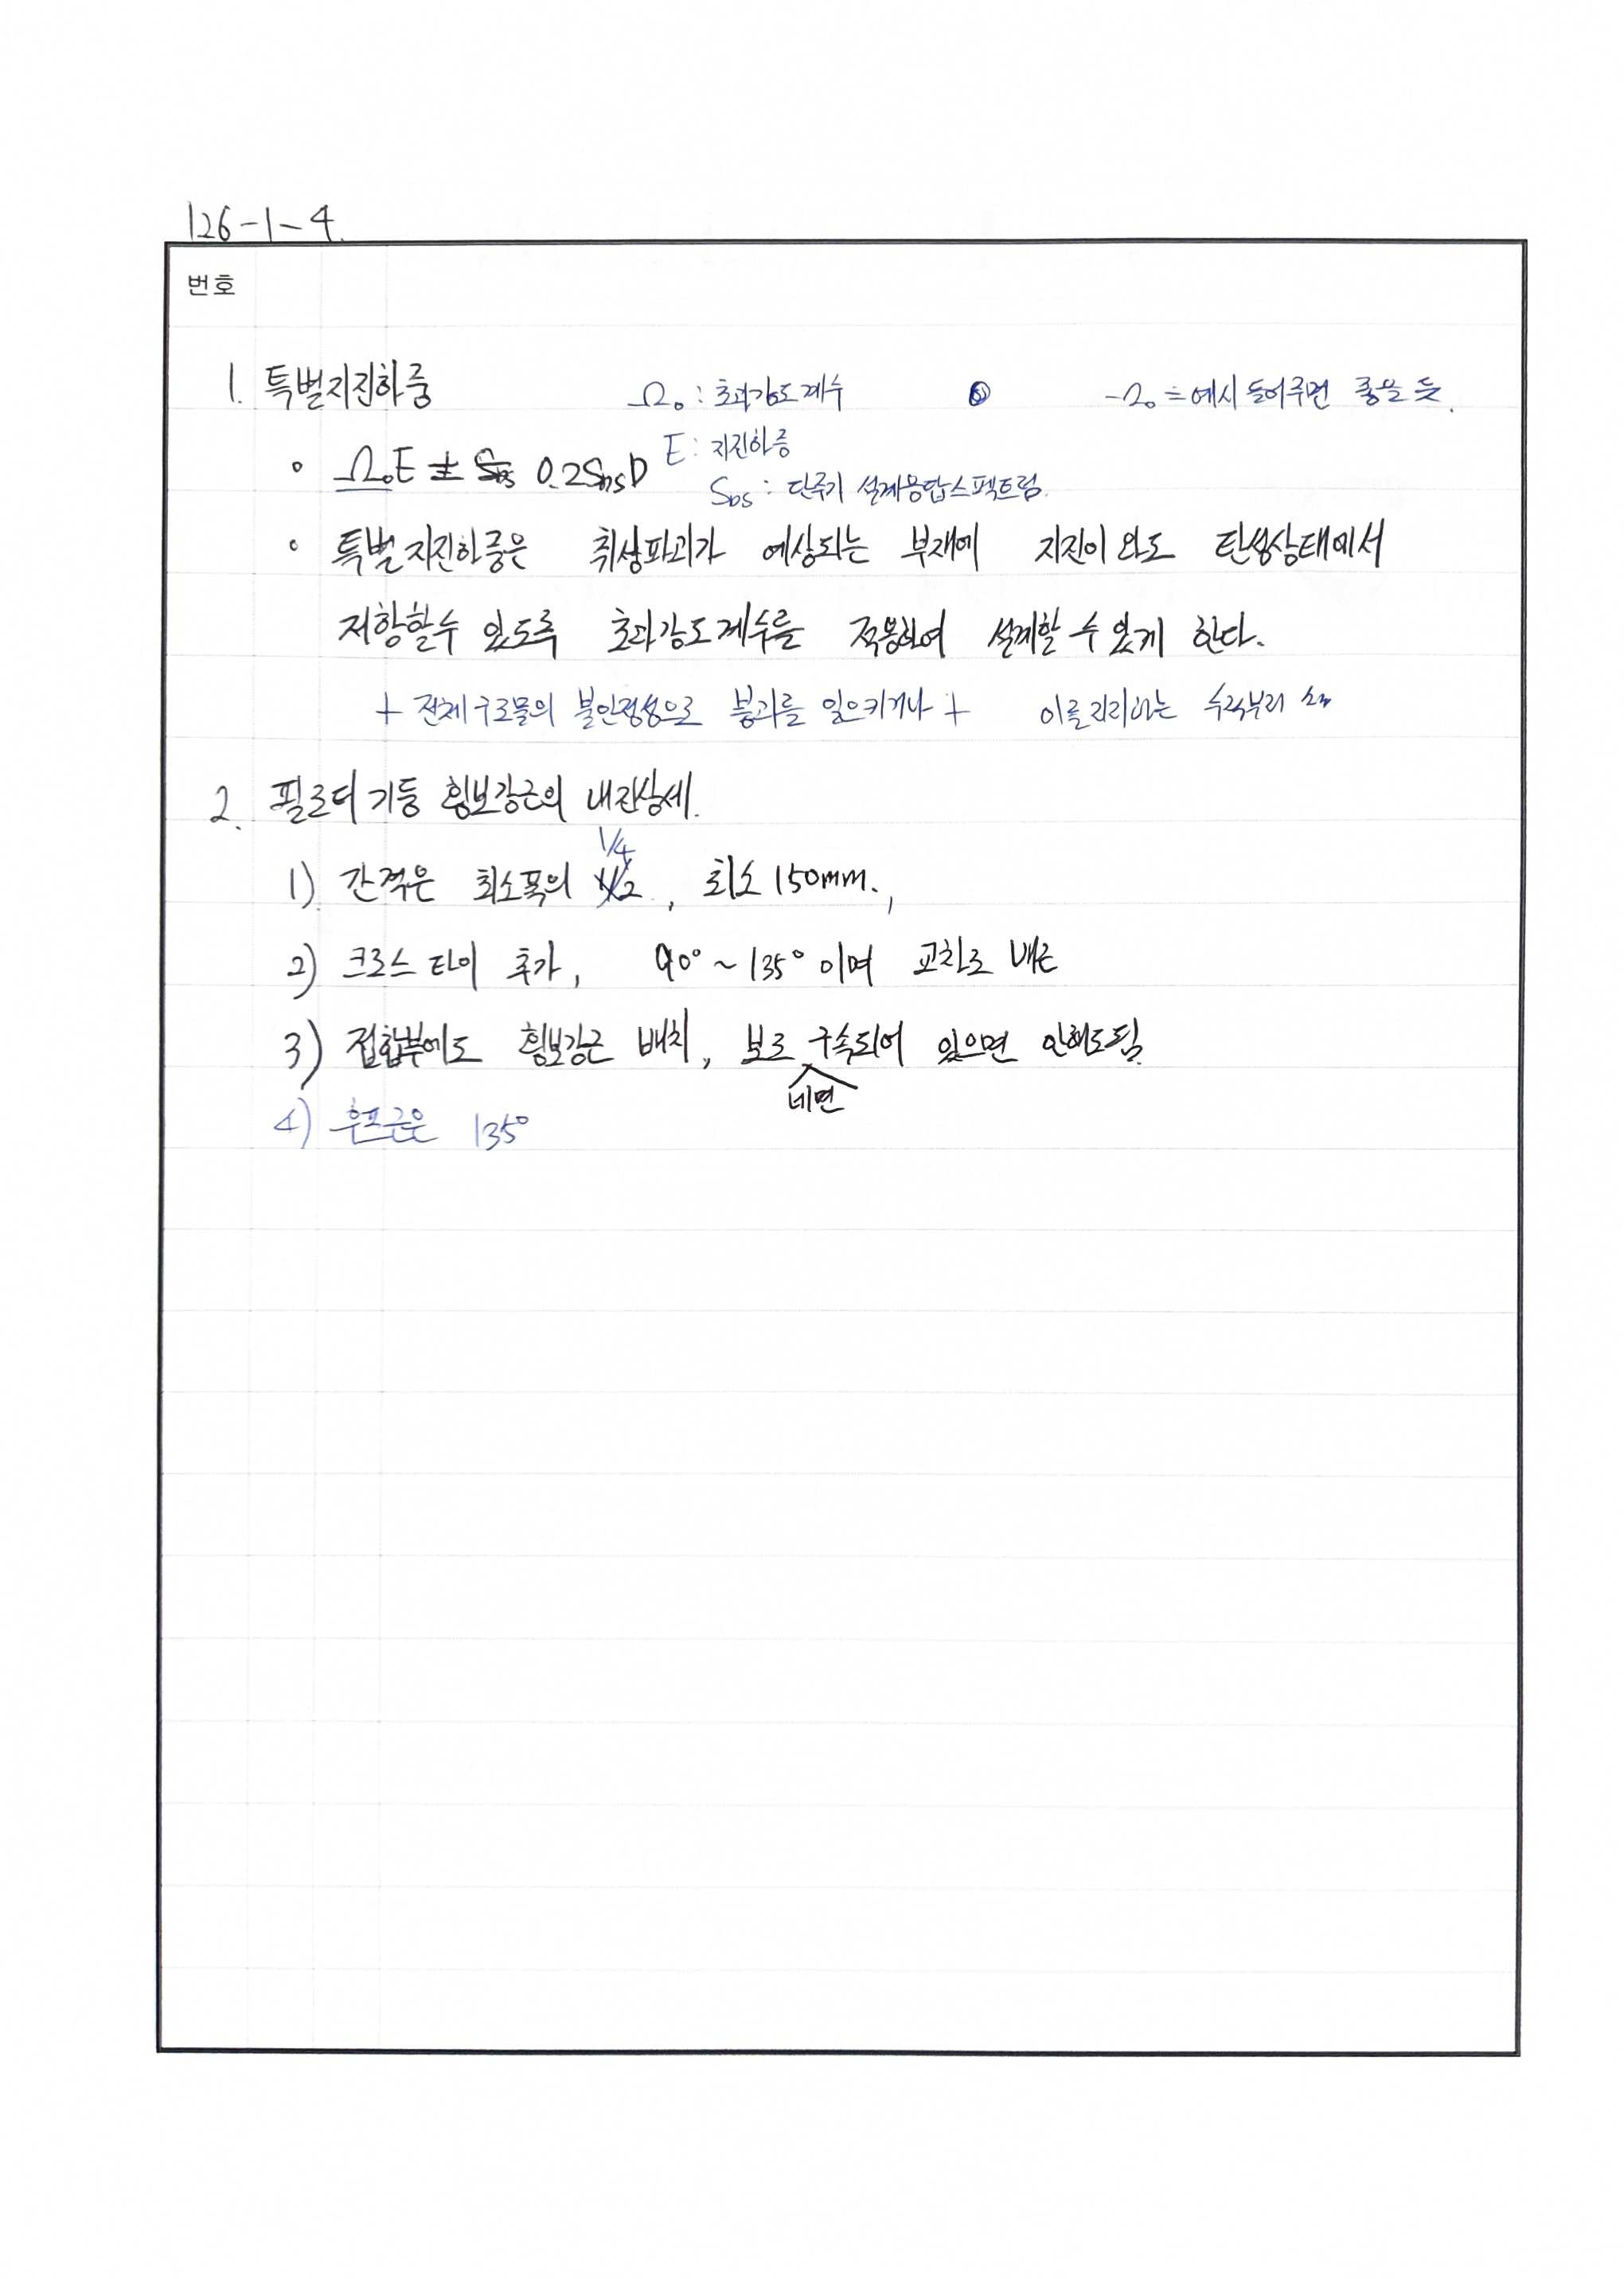 126-1-4.
번호
1. 특별지진하중 Ω₀ : 초과강도계수 -Ω₀ 는 예시 들어주면 좋을 듯.
◦ Ω₀E ± 0.2S_DS D E : 지진하중
S_DS : 단주기 설계응답스펙트럼.
◦ 특별지진하중은 취성파괴가 예상되는 부재에 지진이 와도 탄성상태에서
저항할수 있도록 초과강도계수를 적용하여 설계할 수 있게 한다.
+ 전체구조물의 불안정성으로 붕괴를 일으키거나 + 이를 지지하는 수직부재
2. 필로티 기둥 횡보강근의 내진상세.
1/4
1) 간격은 최소폭의 1/2, 최소 150mm.,
2) 크로스 타이 추가, 90° ~ 135° 이며 교차로 배근
3) 접합부에도 횡보강근 배치, 보로 구속되어 있으면 안해도됨.
네면
4) 후프근은 135°